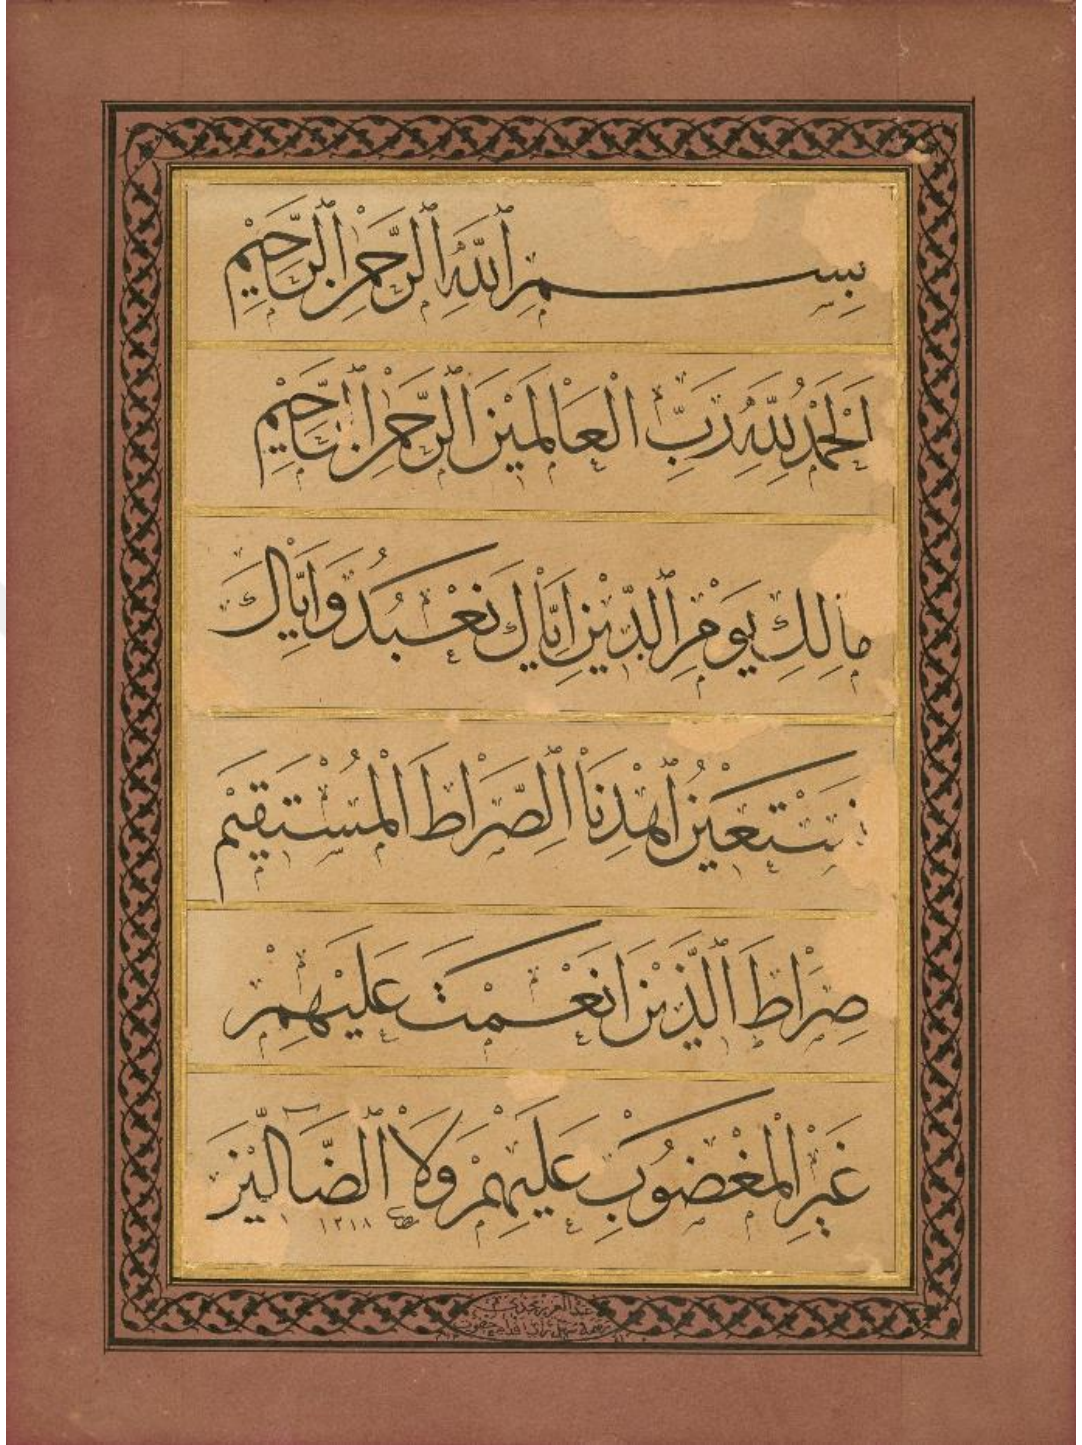 بِسْمِ ٱللَّهِ ٱلرَّحْمٰنِ ٱلرَّحِيْمِ
اَلْحَمْدُ لِلَّهِ رَبِّ الْعَالَمِيْنَ ٱلرَّحْمٰنِ ٱلرَّحِيْمِ
مَالِكِ يَوْمِ ٱلدِّيْنِ اِيَّاكَ نَعْبُدُ وَاِيَّاكَ
نَسْتَعِيْنُ اِهْدِنَا ٱلصِّرَاطَ الْمُسْتَقِيْمَ
صِرَاطَ ٱلَّذِيْنَ اَنْعَمْتَ عَلَيْهِمْ
غَيْرِ الْمَغْضُوْبِ عَلَيْهِمْ وَلَا ٱلضَّٓالِّيْنَ
١٢١٨